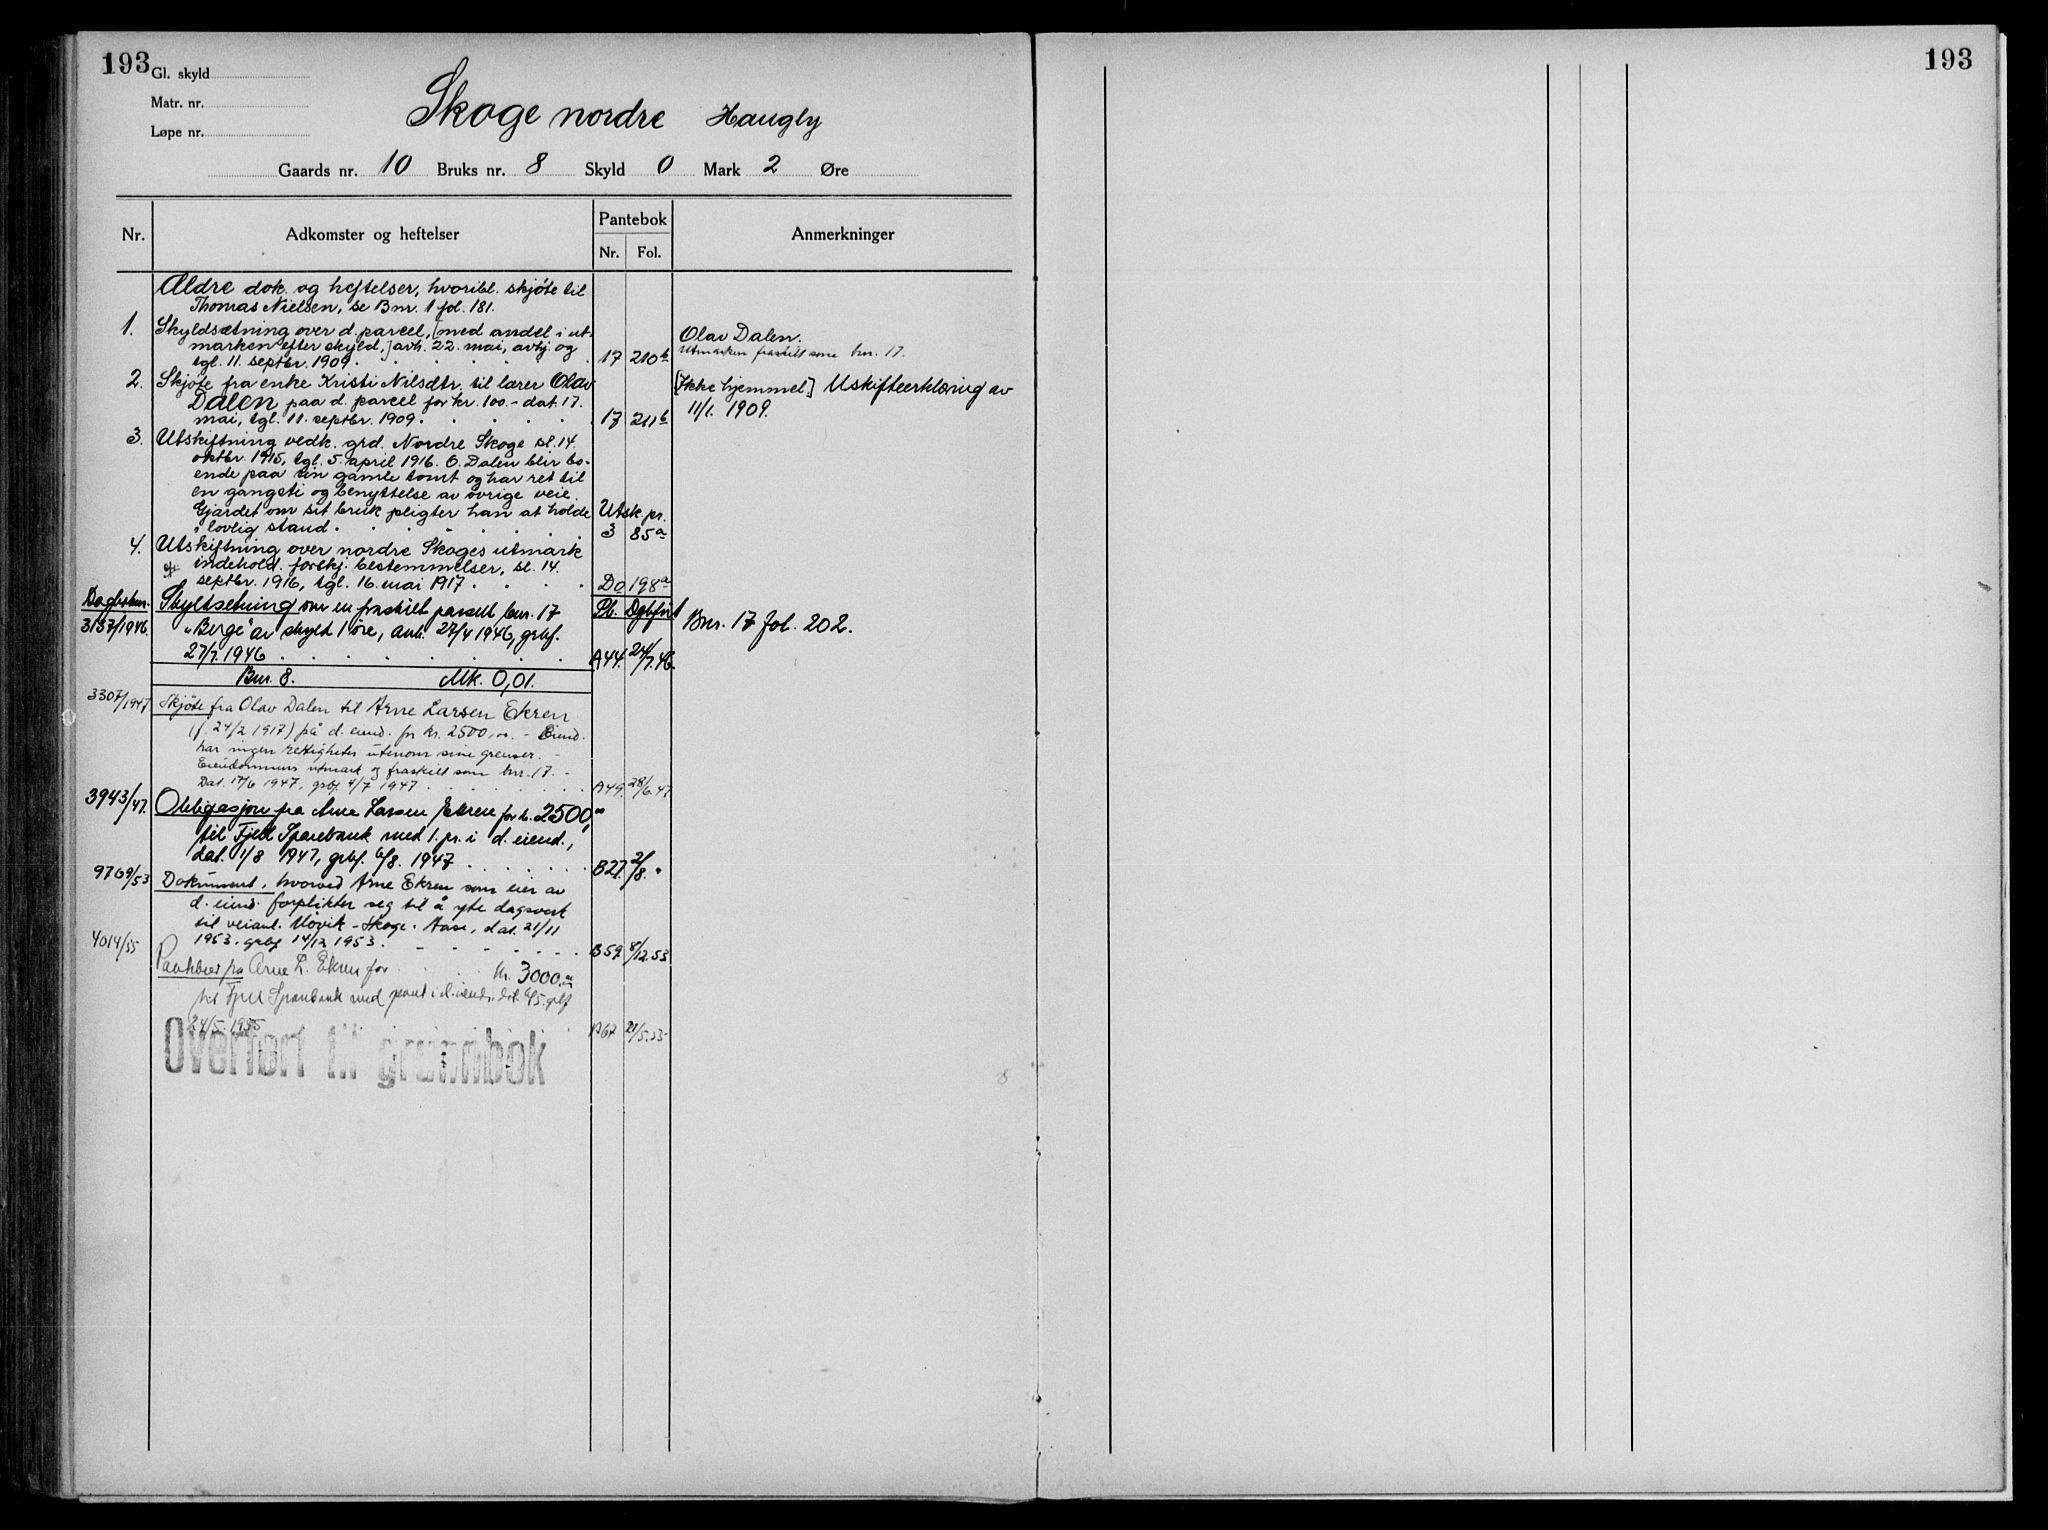 193
193
Gl. skyld
Matr. nr.
Løpe nr.
Skoge nordre Haugly
Gaards nr. 10 Bruks nr. 8 Skyld 0 Mark 2 Øre
Nr. Adkomster og heftelser Pantebok Anmerkninger
Nr. Fol.
Ældre dok. og heftelser, hvoribl. skjøte til
Thomas Nielsen, se Bnr. 1 fol. 181.
1. Skyldsætning over d. parcel, [med andel i ut-
marken efter skyld,] avh. 22. mai, avhj. og
tgl. 11. septbr. 1909. 17 210b
Olav Dalen.
Utmarken fraskilt som bnr. 17.
2. Skjøte fra enke Kristi Nilsdtr. til lærer Olav
Dalen paa d. parcel for kr. 100.- dat. 17.
mai, tgl. 11. septbr. 1909. 17 211b
[Ikke hjemmel.] Uskifteerklæring av
11/1. 1909.
3. Utskiftning vedk. grd. Nordre Skoge sl. 14.
oktbr. 1915, tgl. 5. april 1916. O. Dalen blir bo-
ende paa sin gamle tomt og har ret til
en gangsti og benyttelse av øvrige veie.
Gjærdet om sit bruk pligter han at holde
i lovlig stand. Utsk. pr. 3 85a
4. Utskiftning over nordre Skoges utmark
indehold. forskj. bestemmelser, sl. 14.
septbr. 1916, tgl. 16. mai 1917. Do 198a
Dagboknr. Pb. Dgbført
3137/1946. Skyldsetning over en fraskilt parsell bnr. 17
"Berge" av skyld 1 øre, avh. 27/4 1946, grbf.
27/7. 1946 A44. 24/7.46.
Bnr. 17 fol. 202.
Bnr. 8. Mk. 0,01.
3307/1947 Skjøte fra Olav Dalen til Arne Larsen Ekren
(f. 24/2 1917) på d. eiend. for kr. 2500,oo. - Eiend.
har ingen rettigheter utenom sine grenser. -
Eiendommens utmark og fraskilt som bnr. 17. -
Dat. 17/6 1947, grbf. 4/7 1947 A49. 28/6.47
3943/47. Obligasjon fra Arne Larsen Ekren for kr. 2500,oo
til Fjell Sparebank med 1. pr. i d. eiend.,
dat. 1/8 1947, grbf. 6/8. 1947 B27. 2/8. "
9769/53 Dokument, hvorved Arne Ekren som eier av
d. eiend. forplikter seg til å yte dagsverk
til veianl. Møvik - Skoge - Aase, dat. 21/11
1953. grbf 14/12 1953. B59 8/12.53
4014/55 Pantebrev fra Arne L. Ekren for kr. 3000,oo
til Fjell Sparebank med pant i d. eiend. dat. 6/5. grbf
24/5. 1955 B67 21/5.55
Overført til grunnbok